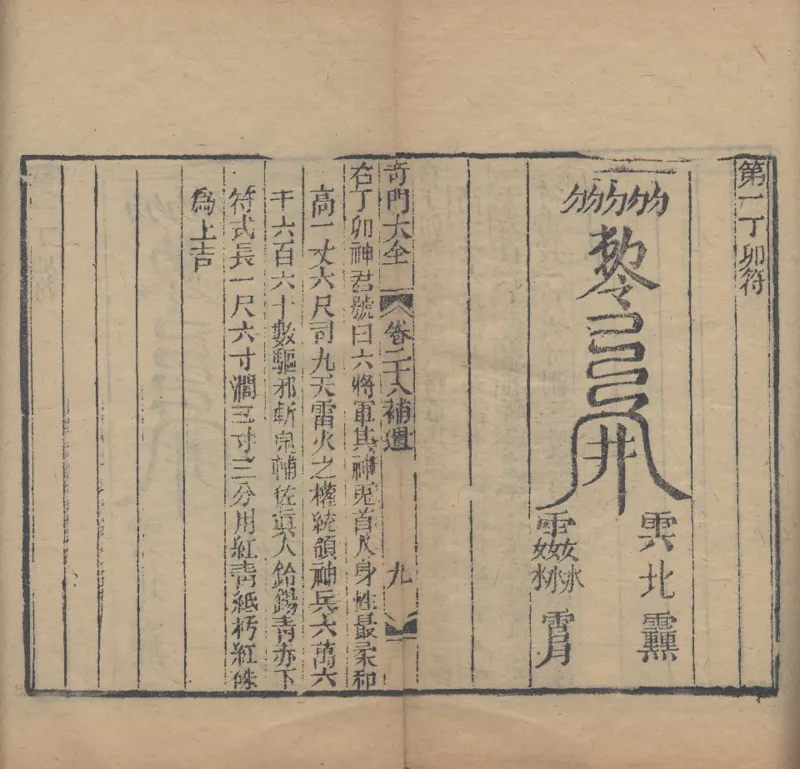 第一丁卯符
敕令
井
北
奇門大全
卷二十八補遺
九
右丁卯神君號曰六將軍其神兎首人身性最柔和
高一丈六尺司九天雷火之權統領神兵六萬六
千六百六十數驅邪斬鬼輔佐眞人鈴錫靑赤下
符式長一尺六寸濶三寸三分用紅靑紙朽紅硃
爲上吉